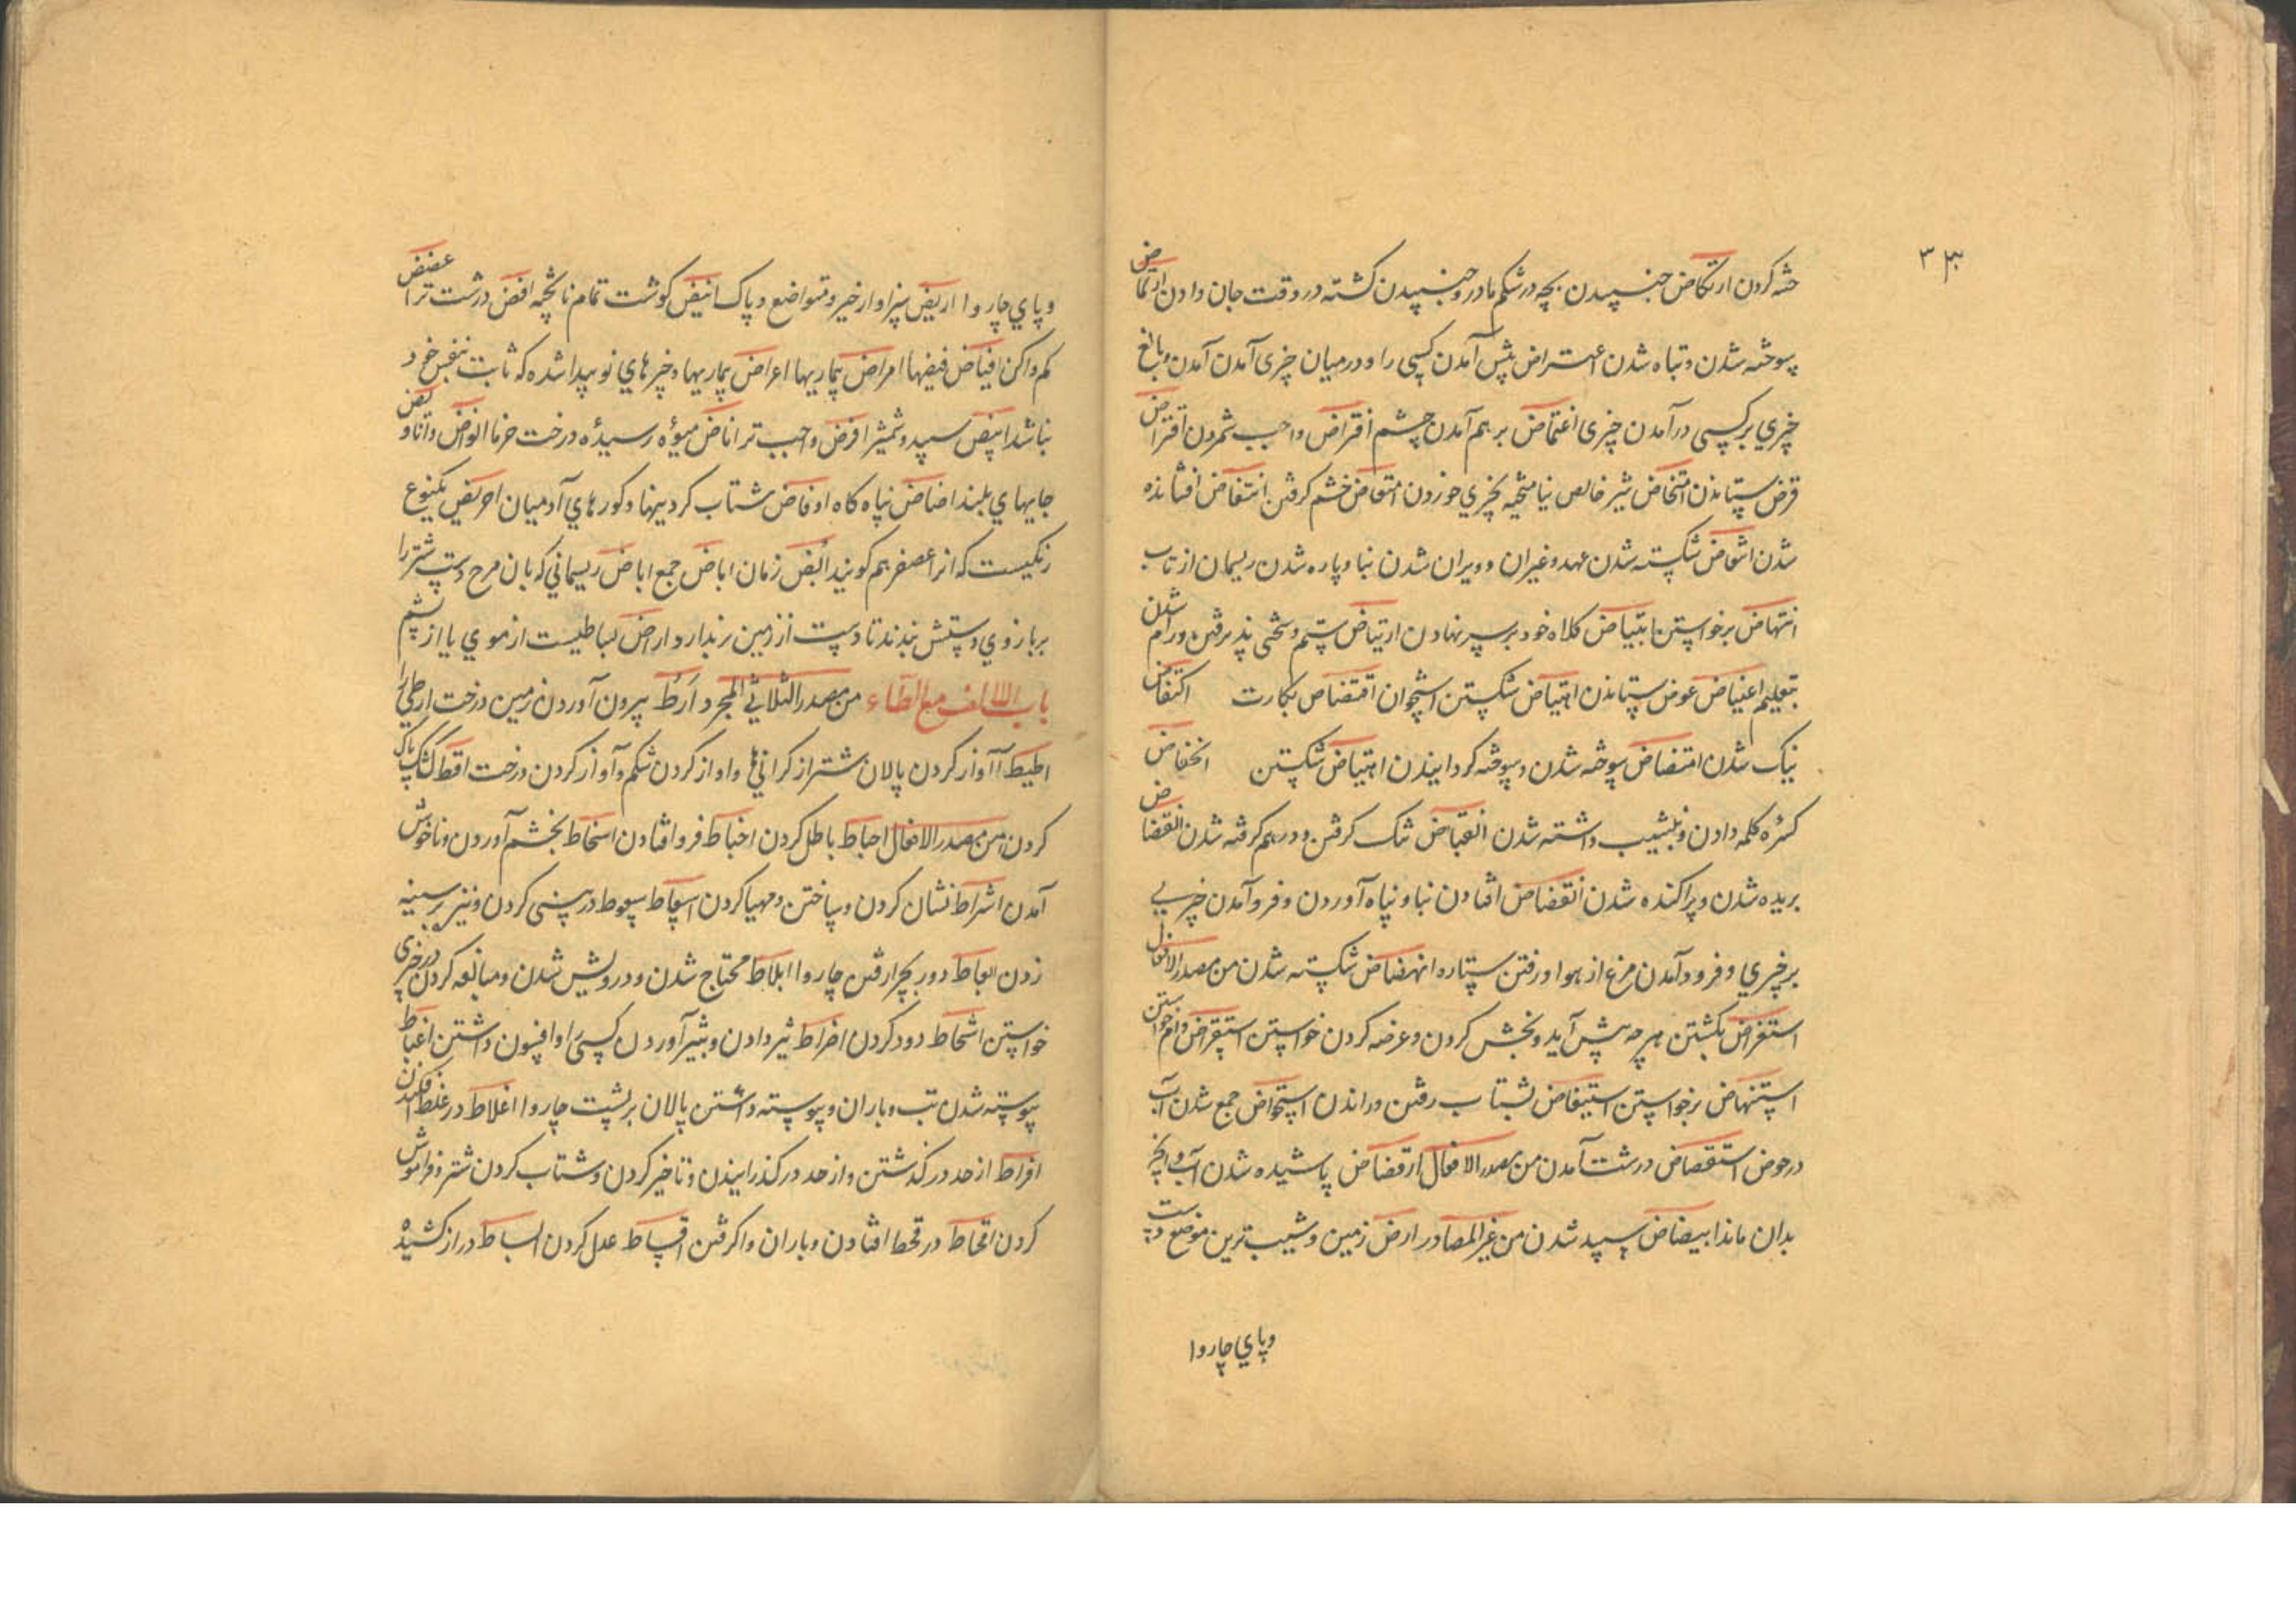 ۳۳
خته کردن ارتکاض جنبیدن بچه در شکم مادر و جنبیدن کشته در وقت جان دادن ارتماض
سوخته شدن و تباه شدن اعتراض پیش آمدن کسی را و در میان چیزی آمدن آمدن و مانع
چیزي بر کسی در آمدن چیزی اغتماض بر هم آمدن چشم افتراض واجب شمردن اقتراض
قرض ستاندن امتخاض شیر خالص نیامیخته بچیزي خوردن امتعاض خشم کرفتن انتفاض افشانده
شدن انتقاض شکسته شدن عهد و غیر آن و ویران شدن بنا و پاره شدن ریسمان از تاب
انتهاض برخواستن ابتیاض کلاه خود بر سر نهادن ارتیاض ستم و سختی پذیرفتن و رام شدن
بتعلیم اعتیاض عوض ستاندن اهتیاض شکستن استخوان اقتضاض بکارت
نیک شدن امتضاض سوخته شدن و سوخته کردانیدن اهتیاض شکستن انخفاض
کسره کلمه دادن و بنشیب داشته شدن انقباض تنک کرفتن و درهم کرفته شدن انقضاض
بریده شدن و پراکنده شدن انقضاض افتادن بنا و پناه آوردن و فرو آمدن چیزیی
بر چیزي و فرود آمدن مرغ از هوا و رفتن ستاره انهضاض شکسته شدن من مصدر الافعال
استعراض بکشتن هر چه پیش آید و بخش کردن و عرضه کردن خواستن استقراض وام خواستن
استنهاض برخواستن استیفاض بشتاب رفتن و راندن استحواض جمع شدن آب
در حوض استقضاض درشت آمدن من مصدر الافعال ارفضاض پاشیده شدن آب و آنچه
بدان ماند ابیضاض سپید شدن من غیر المصادر ارض زمین و شیب ترین موضع دست
وپاي چاروا
وپاي چاروا اریض سزاوار خیر و متواضع و پاک انیض کوشت تمام ناپخته افض درشت تر
کم واکن افیاض فیضها امراض بیماریها اعراض بیماریها و چیزهاي نو پیدا شده که ثابت بنفس خود
نباشد ابیض سپید و شمشیر افرض واجب تر اناض میوۀ رسیدۀ درخت خرما
جایهاي بلند اضاض پناه کاه اوفاض شتاب کردنیها و کورهاي آدمیان احریض یکنوع
رنکیست که انرا عصفر هم کویند ابض زمان اباض جمع اباض ریسمانی که بان دست شتر را
بر بازوي دستش بندند تا دست از زمین بردارد اراض بساطیست از موي یا از پشم
باب الالف مع الطاء من مصدر الثلاثی المجرد ارط بیرون آوردن زمین درخت ارطی را
اطیط آواز کردن پالان شتر از کرانیها و اواز کردن شکم و آواز کردن درخت اقط کشک پاک
کردن من مصدر الافعال احباط باطل کردن اخباط فرو افتادن اسخاط بخشم آوردن و ناخوش
آمدن اشراط نشان کردن و ساختن و مهیا کردن اسعاط سعوط در بینی کردن و نیزه بر سینه
زدن ابعاط دور بچرا رفتن چاروا ابلاط محتاج شدن و درویش شدن و مبالغه کردن در چیزی
خواستن اشحاط دور کردن افراط شیر دادن و بشیر آوردن کسی را و افسون داشتن اغباط
پیوسته شدن تب و باران و پیوسته داشتن پالان بر پشت چاروا اغلاط در غلط افکندن
افراط از حد در کذشتن و از حد در کذرانیدن و تاخیر کردن و شتاب کردن شتر و فراموش
کردن اقحاط در قحط افتادن و باران واکرفتن اقساط عدل کردن البساط دراز کشیده